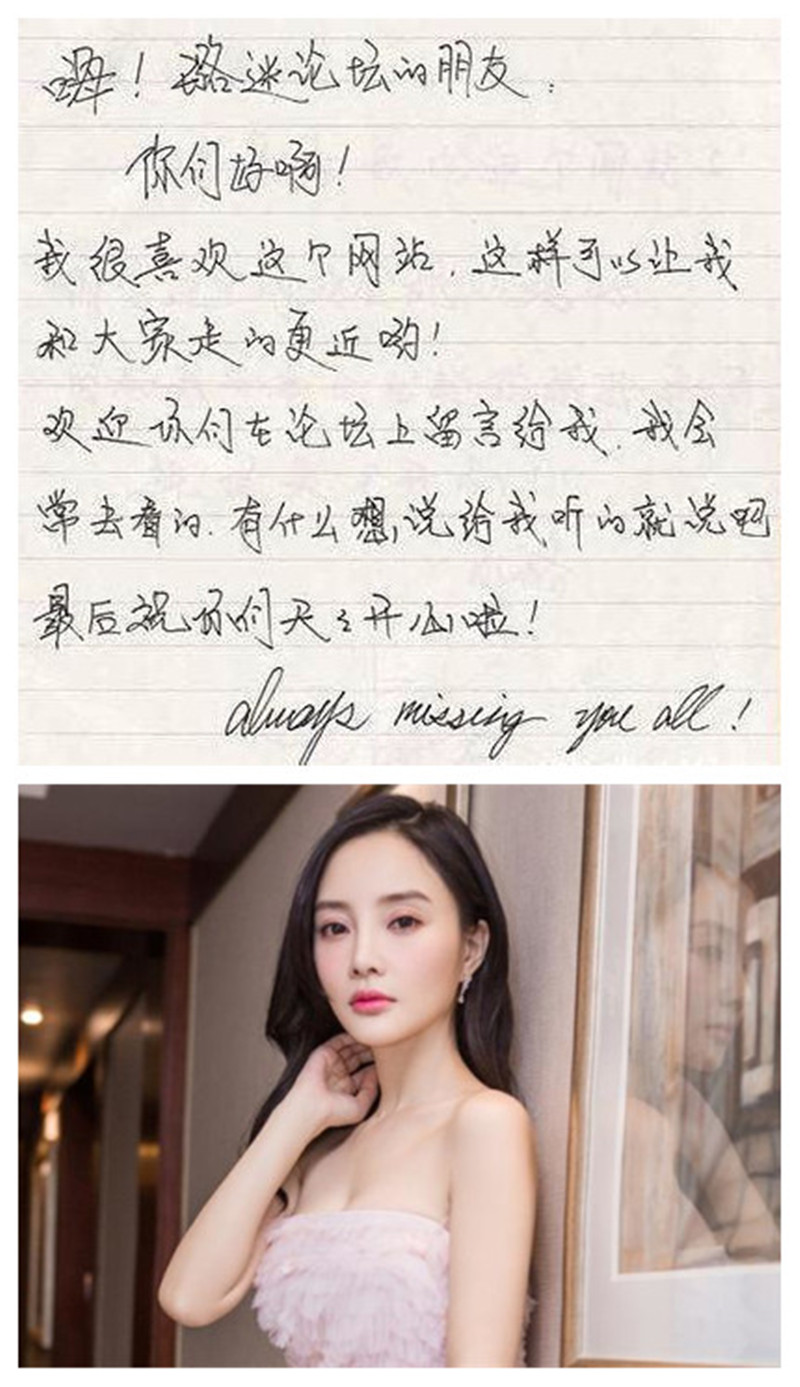 嗨！璐迷论坛的朋友：
你们好啊！
我很喜欢这个网站，这样可以让我
和大家走的更近哟！
欢迎你们在论坛上留言给我，我会
常去看的.有什么想,说给我听的就说吧
最后祝你们天天开心啦！
always missing you all！